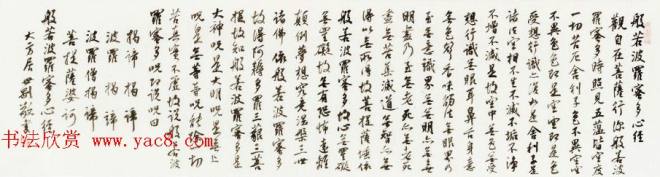 般若波羅蜜多心經
觀自在菩薩行深般若波
羅蜜多時照見五蘊皆空度
一切苦厄舍利子色不異空
受想行識亦復如是舍利子是
諸法空相不生不滅不垢不淨
不增不減是故空中無色無受
想行識無眼耳鼻舌身意
無色聲香味觸法無眼界乃
至無意識界無無明亦無
無明盡乃至無老死亦無老死
盡無苦集滅道無智亦無
得以無所得故菩提薩埵依
般若波羅蜜多故心無罣礙
無罣礙故無有恐怖遠離
顛倒夢想究竟涅槃三世
諸佛依般若波羅蜜多
故得阿耨多羅三藐三菩
提故知般若波羅蜜多是
大神咒是大明咒是無上
咒是無等等咒能除一切
苦真實不虛故說般若波
羅蜜多咒即說咒曰
揭諦 揭諦
波羅 揭諦
波羅僧揭諦
菩提薩婆訶
书法欣赏 www.yac8.com